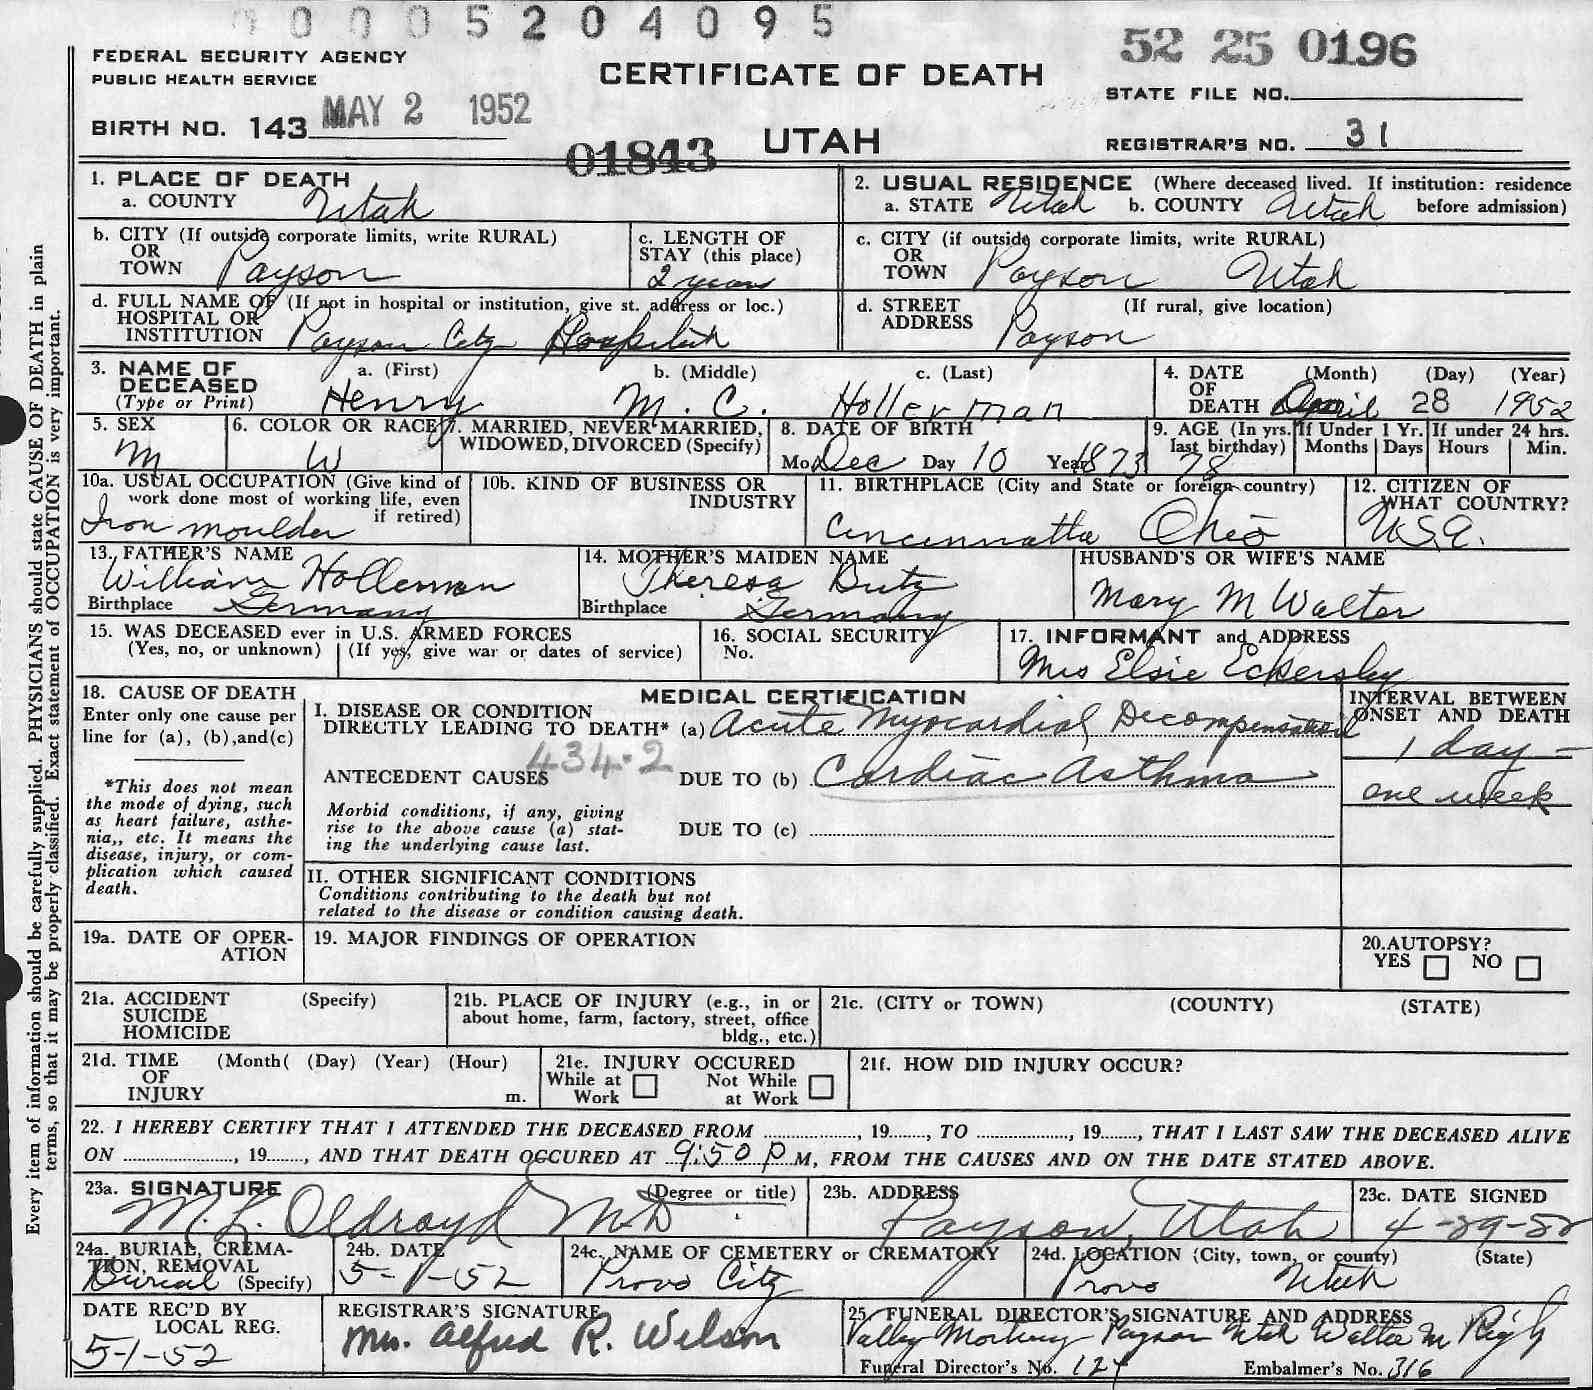 00005204095
FEDERAL SECURITY AGENCY
PUBLIC HEALTH SERVICE
CERTIFICATE OF DEATH
52 25 0196
STATE FILE NO.
BIRTH NO. 143 MAY 2 1952
01843
UTAH
REGISTRAR'S NO. 31
1. PLACE OF DEATH
a. COUNTY Utah
2. USUAL RESIDENCE (Where deceased lived. If institution: residence
a. STATE Utah b. COUNTY Utah before admission)
b. CITY (If outside corporate limits, write RURAL)
OR
TOWN Payson
c. LENGTH OF
STAY (this place)
2 years
c. CITY (if outside corporate limits, write RURAL)
OR
TOWN Payson Utah
d. FULL NAME OF (If not in hospital or institution, give st. address or loc.)
HOSPITAL OR
INSTITUTION Payson City Hospital
d. STREET (If rural, give location)
ADDRESS Payson
3. NAME OF a. (First) b. (Middle) c. (Last)
DECEASED
(Type or Print) Henry M. C. Hollerman
4. DATE (Month) (Day) (Year)
OF
DEATH April 28 1952
5. SEX
M
6. COLOR OR RACE
W
7. MARRIED, NEVER MARRIED,
WIDOWED, DIVORCED (Specify)
8. DATE OF BIRTH
Mo. Dec Day 10 Year 1873
9. AGE (In yrs. last birthday) 78
If Under 1 Yr.
Months Days
If under 24 hrs.
Hours Min.
10a. USUAL OCCUPATION (Give kind of
work done most of working life, even
if retired)
Iron moulder
10b. KIND OF BUSINESS OR
INDUSTRY
11. BIRTHPLACE (City and State or foreign country)
Cincinnatta Ohio
12. CITIZEN OF
WHAT COUNTRY?
U.S.A.
13. FATHER'S NAME
William Holleman
Birthplace Germany
14. MOTHER'S MAIDEN NAME
Theresa Butz
Birthplace Germany
HUSBAND'S OR WIFE'S NAME
Mary M Walter
15. WAS DECEASED ever in U.S. ARMED FORCES
(Yes, no, or unknown) (If yes, give war or dates of service)
16. SOCIAL SECURITY
No.
17. INFORMANT and ADDRESS
Mrs Elsie Eckersley
18. CAUSE OF DEATH
Enter only one cause per
line for (a), (b),and(c)
*This does not mean
the mode of dying, such
as heart failure, asthe-
nia,, etc. It means the
disease, injury, or com-
plication which caused
death.
MEDICAL CERTIFICATION
I. DISEASE OR CONDITION
DIRECTLY LEADING TO DEATH* (a) Acute Myocardial Decompensation
434.2
ANTECEDENT CAUSES DUE TO (b) Cardiac Asthma
Morbid conditions, if any, giving
rise to the above cause (a) stat-
ing the underlying cause last.
DUE TO (c)
INTERVAL BETWEEN
ONSET AND DEATH
1 day –
one week
II. OTHER SIGNIFICANT CONDITIONS
Conditions contributing to the death but not
related to the disease or condition causing death.
19a. DATE OF OPER-
ATION
19. MAJOR FINDINGS OF OPERATION
20.AUTOPSY?
YES NO
21a. ACCIDENT (Specify)
SUICIDE
HOMICIDE
21b. PLACE OF INJURY (e.g., in or
about home, farm, factory, street, office
bldg., etc.)
21c. (CITY or TOWN) (COUNTY) (STATE)
21d. TIME (Month( (Day) (Year) (Hour)
OF
INJURY m.
21e. INJURY OCCURED
While at Work Not While at Work
21f. HOW DID INJURY OCCUR?
22. I HEREBY CERTIFY THAT I ATTENDED THE DECEASED FROM ................, 19......., TO ................, 19......., THAT I LAST SAW THE DECEASED ALIVE
ON ................, 19......., AND THAT DEATH OCCURED AT 9:50 P M, FROM THE CAUSES AND ON THE DATE STATED ABOVE.
23a. SIGNATURE (Degree or title)
M. L. Oldroyd MD
23b. ADDRESS
Payson, Utah
23c. DATE SIGNED
4-29-52
24a. BURIAL, CREMA-
TION, REMOVAL
Burial (Specify)
24b. DATE
5-1-52
24c. NAME OF CEMETERY or CREMATORY
Provo City
24d. LOCATION (City, town, or county) (State)
Provo Utah
DATE REC'D BY
LOCAL REG.
5-1-52
REGISTRAR'S SIGNATURE
Mrs. Alfred R. Wilson
25 FUNERAL DIRECTOR'S SIGNATURE AND ADDRESS
Valley Mortuary Payson Utah Walter M
Funeral Director's No. 127 Embalmer's No. 316
Every item of information should be carefully supplied. PHYSICIANS should state CAUSE OF DEATH in plain
terms, so that it may be properly classified. Exact statement of OCCUPATION is very important.